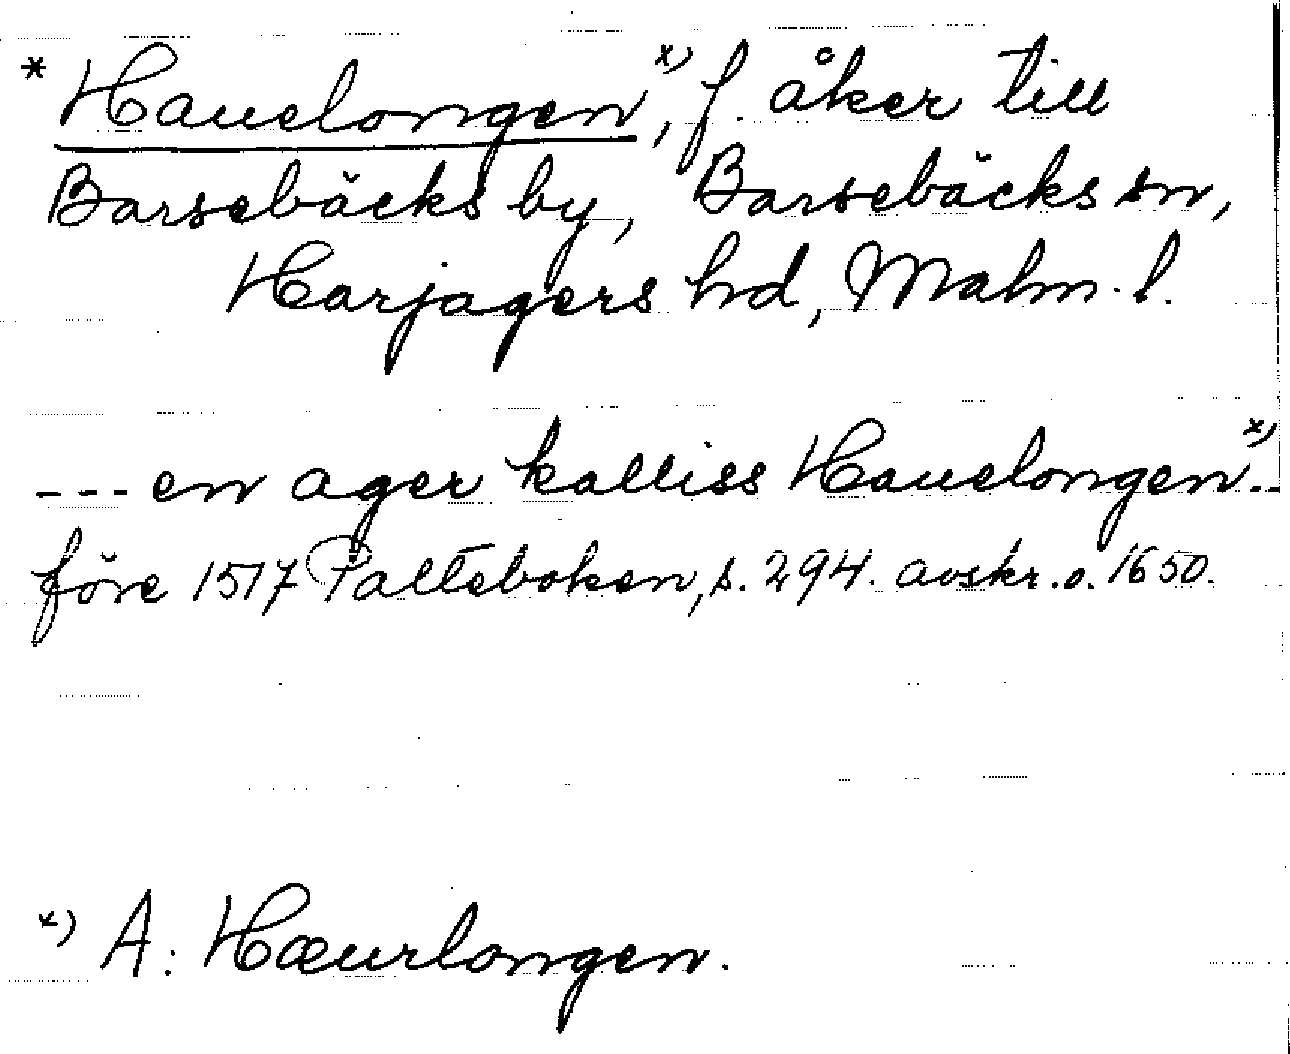 * Hauelongen x), f. åker till
Barsebäcks by, Barsebäcks sn,
Harjagers hd, Malm. l.
--- en ager kalliss Hauelongen x)--
före 1517 Palteboken, s. 294. avskr. o. 1650.
x) A: Hæurlongen.